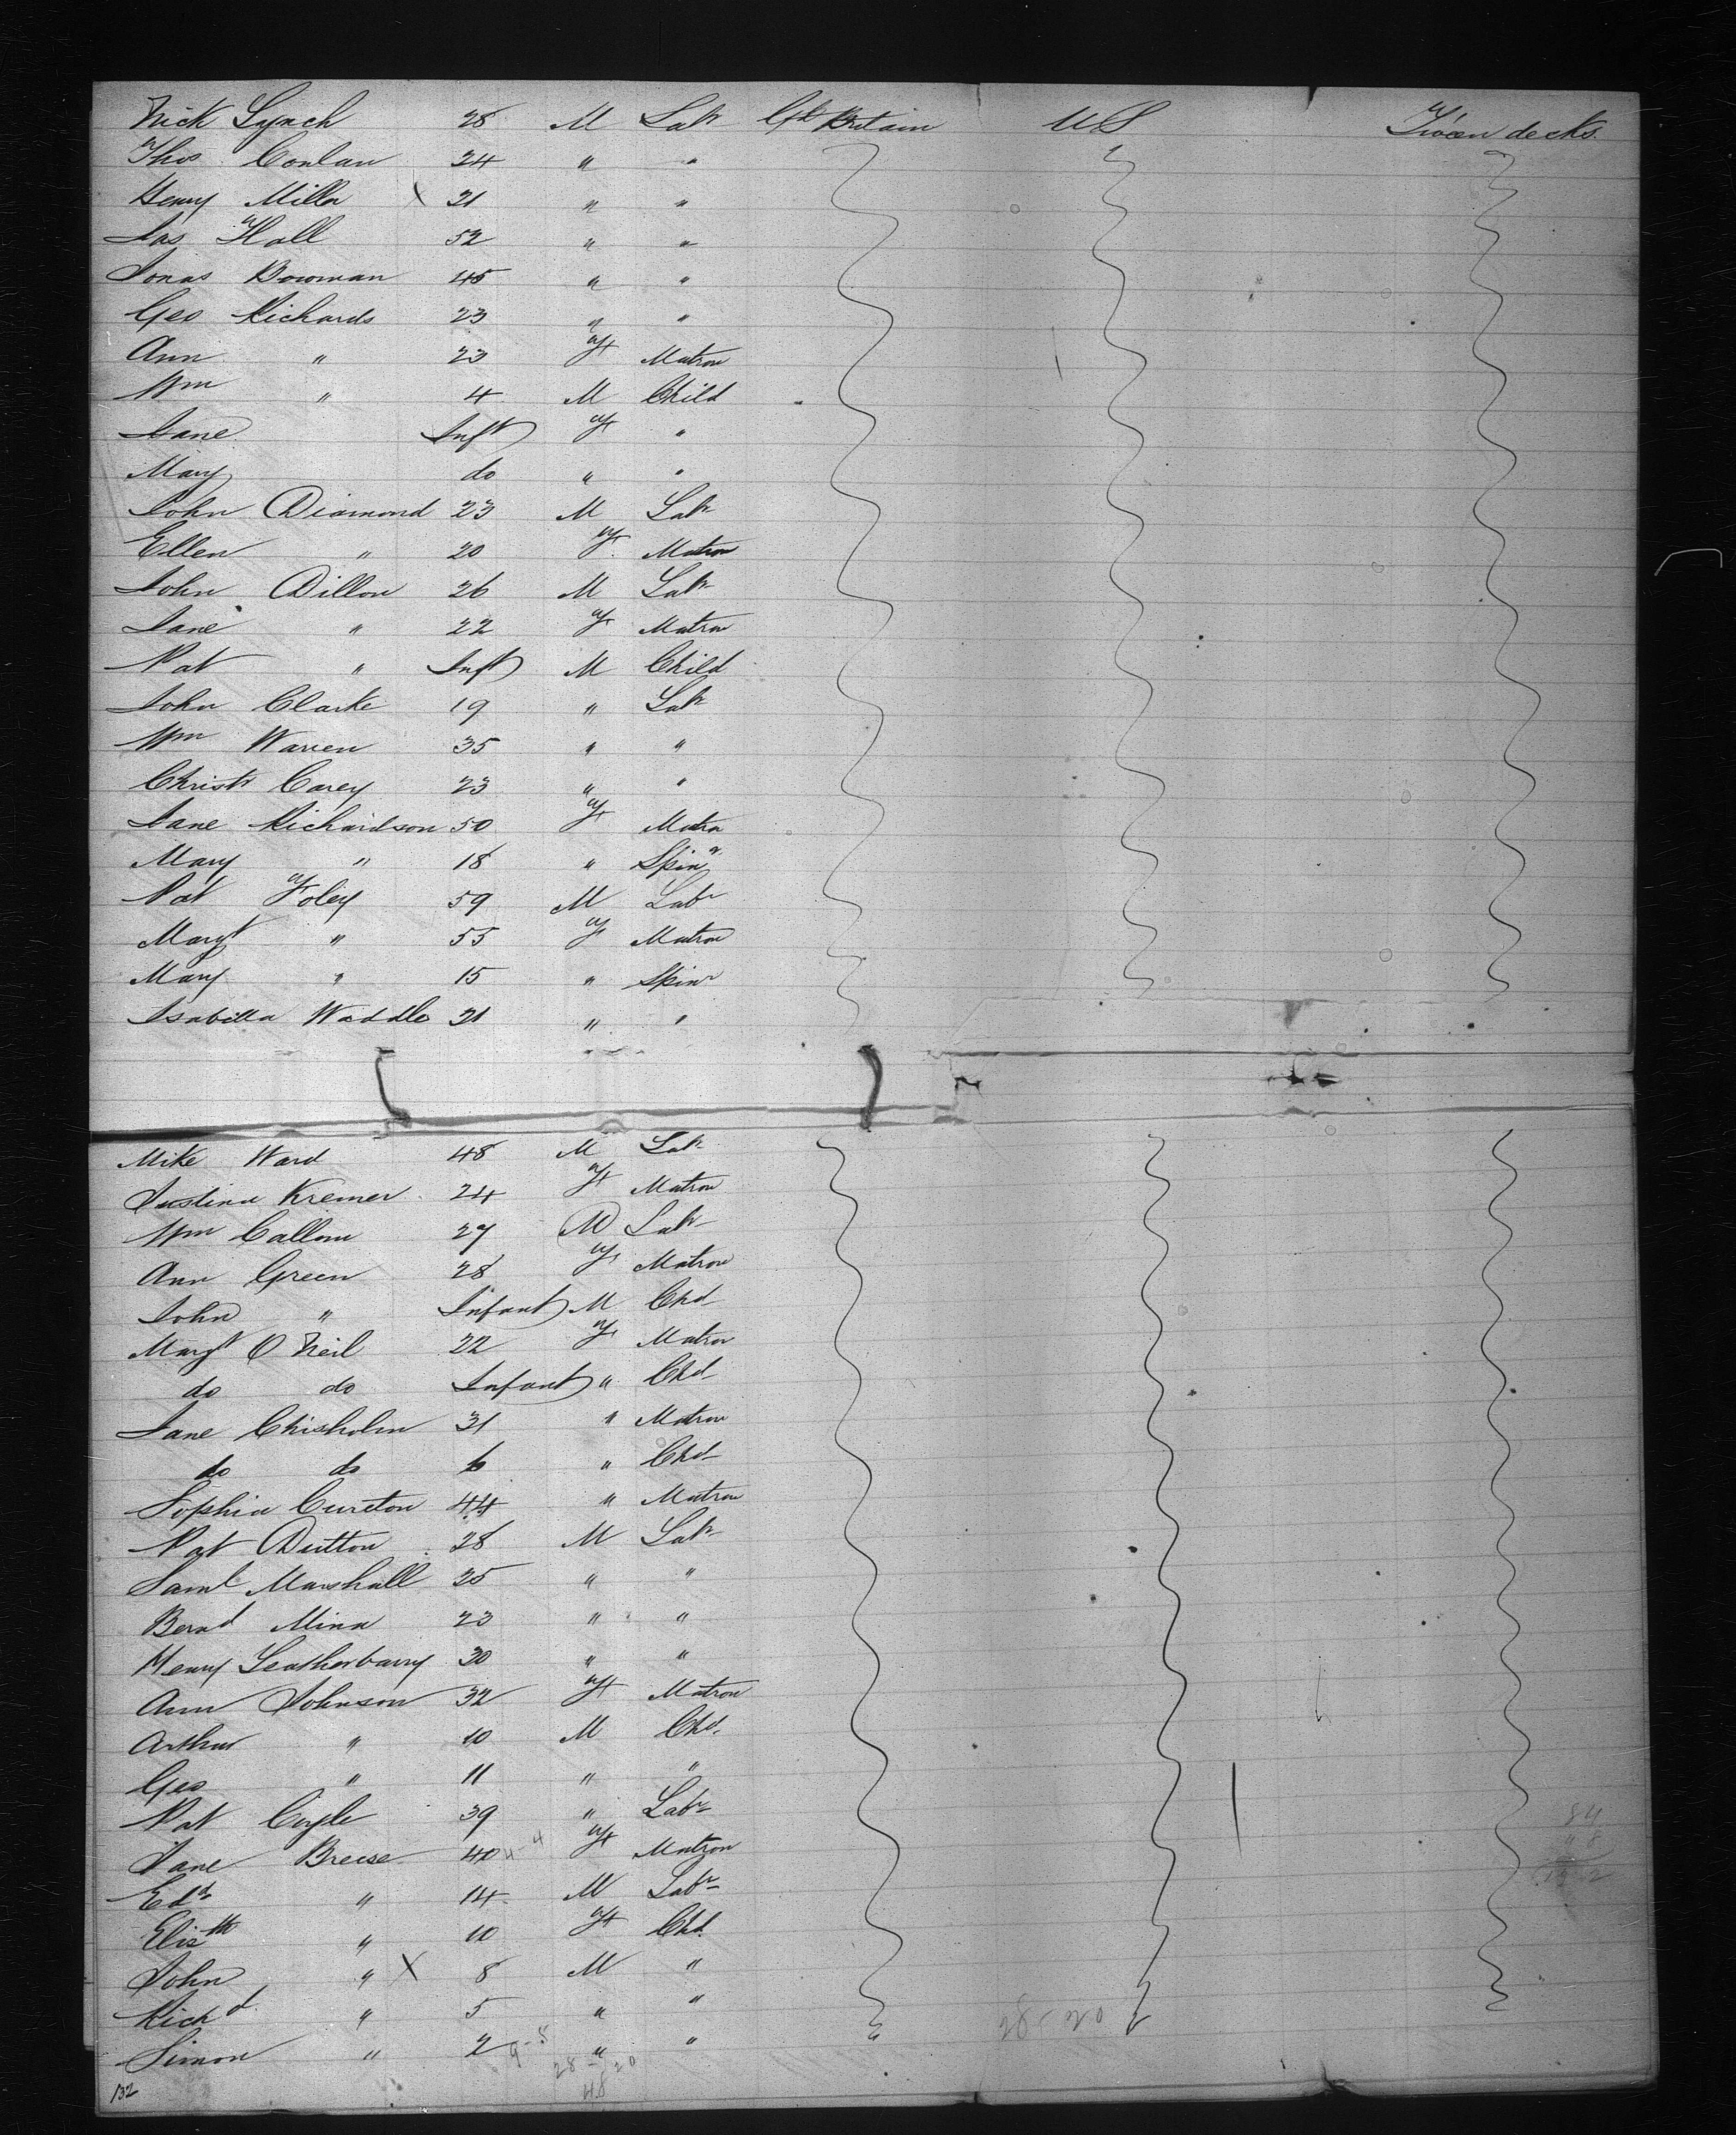 Nick Lynch 28 M Labr Gt Britain US Tween decks.
Thos Conlan 24 " "
Henry Miller X 21 " "
Jas Hall 52 " "
Jonas Bowman 45 " "
Geo Richards 23 " "
Ann " 23 F Matron
Wm " 4 M Child
Jane Inft F "
Mary do " "
John Diamond 23 M Labr
Ellen " 20 F Matron
John Dillon 26 M Labr
Jane " 22 F Matron
Pat " Inft M Child
John Clarke 19 " Labr
Wm Warren 35 " "
Christr Carey 23 " "
Jane Richardson 50 F Matrn
Mary " 18 " Spinr
Pat Foley 59 M Labr
Margt " 55 F Matron
Mary " 15 " Spinr
Isabella Waddle 21 " "
Mike Ward 48 M Labr
Justina Kremer 24 F Matron
Wm Callom 27 M Labr
Ann Green 28 F Matron
John " Infant M Chd
Margt O Neil 22 F Matron
do do Infant " Chd
Jane Chisholm 31 " Matron
do do 6 " Chd
Sophia Cureton 44 " Matron
Pat Dutton 28 M Labr
Saml Marshall 25 " "
Bernd Mina 23 " "
Henry Leatherbarry 30 " "
Ann Johnson 32 F Matron
Arthur " 10 M Chd.
Geo " 11 " "
Pat Coyle 39 " Labr
Jane Breese 40 4-4 F Matron
Edd " 14 M Labr
Elisth " 10 F Chd.
John " X 8 M "
Richd. " 5 " "
Simon " 2 " "
9-8 28-20
48
28-20
84
48
132
132